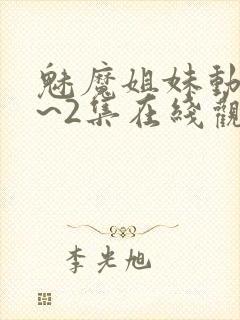 魅魔姐妹動
~2集在綫觀
李光旭